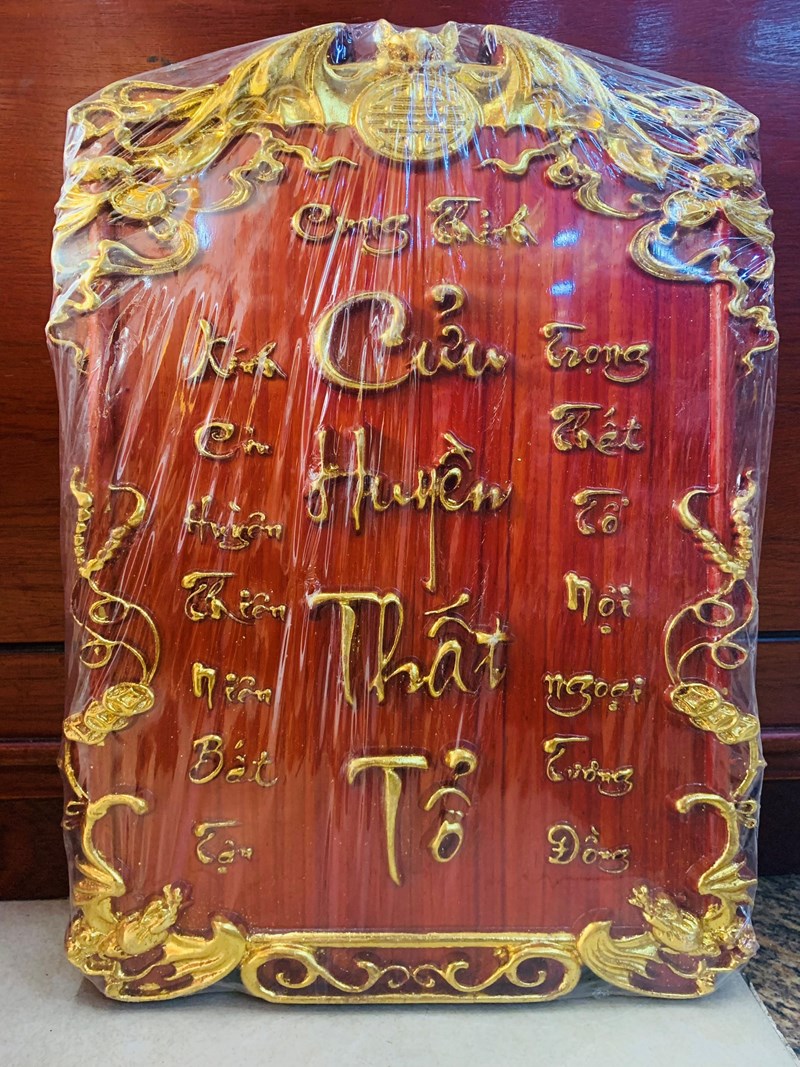 Cung Thỉnh
Cửu Huyền Thất Tổ
Kính Cửu Huyền Thiên Niên Bất Tận
Trọng Thất Tổ Nội Ngoại Tương Đồng